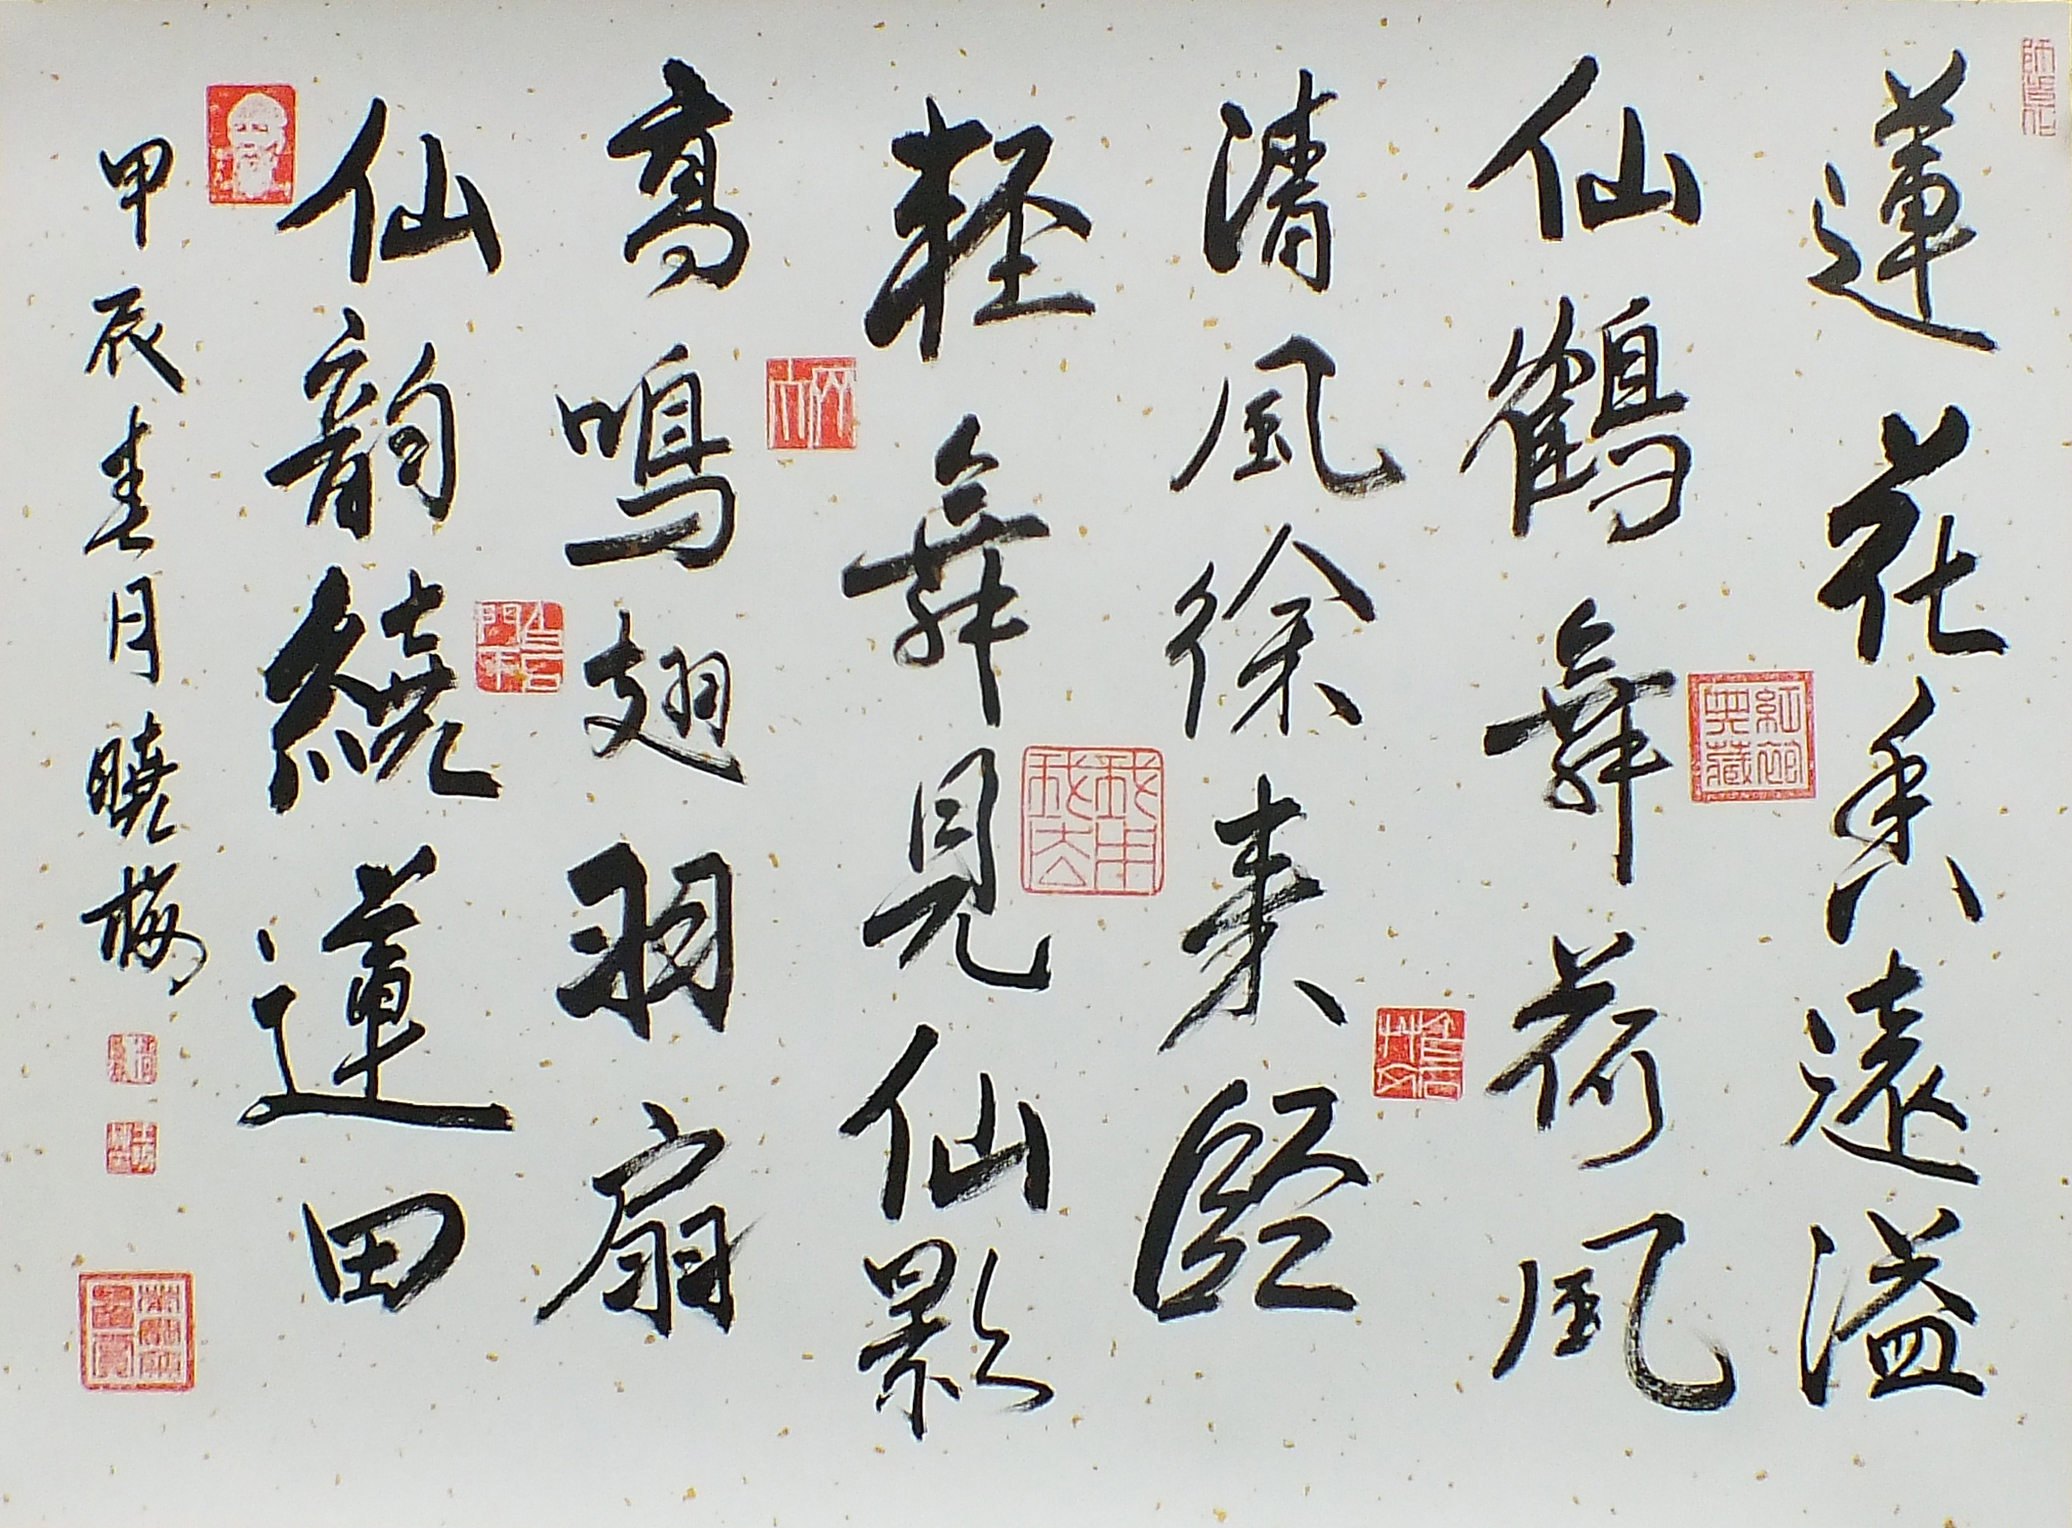 蓮花香遠溢
仙鶴舞荷風
清風徐来
輕舞見仙影
高鳴翅羽扇
仙韵繞蓮田
甲辰春月曉梅